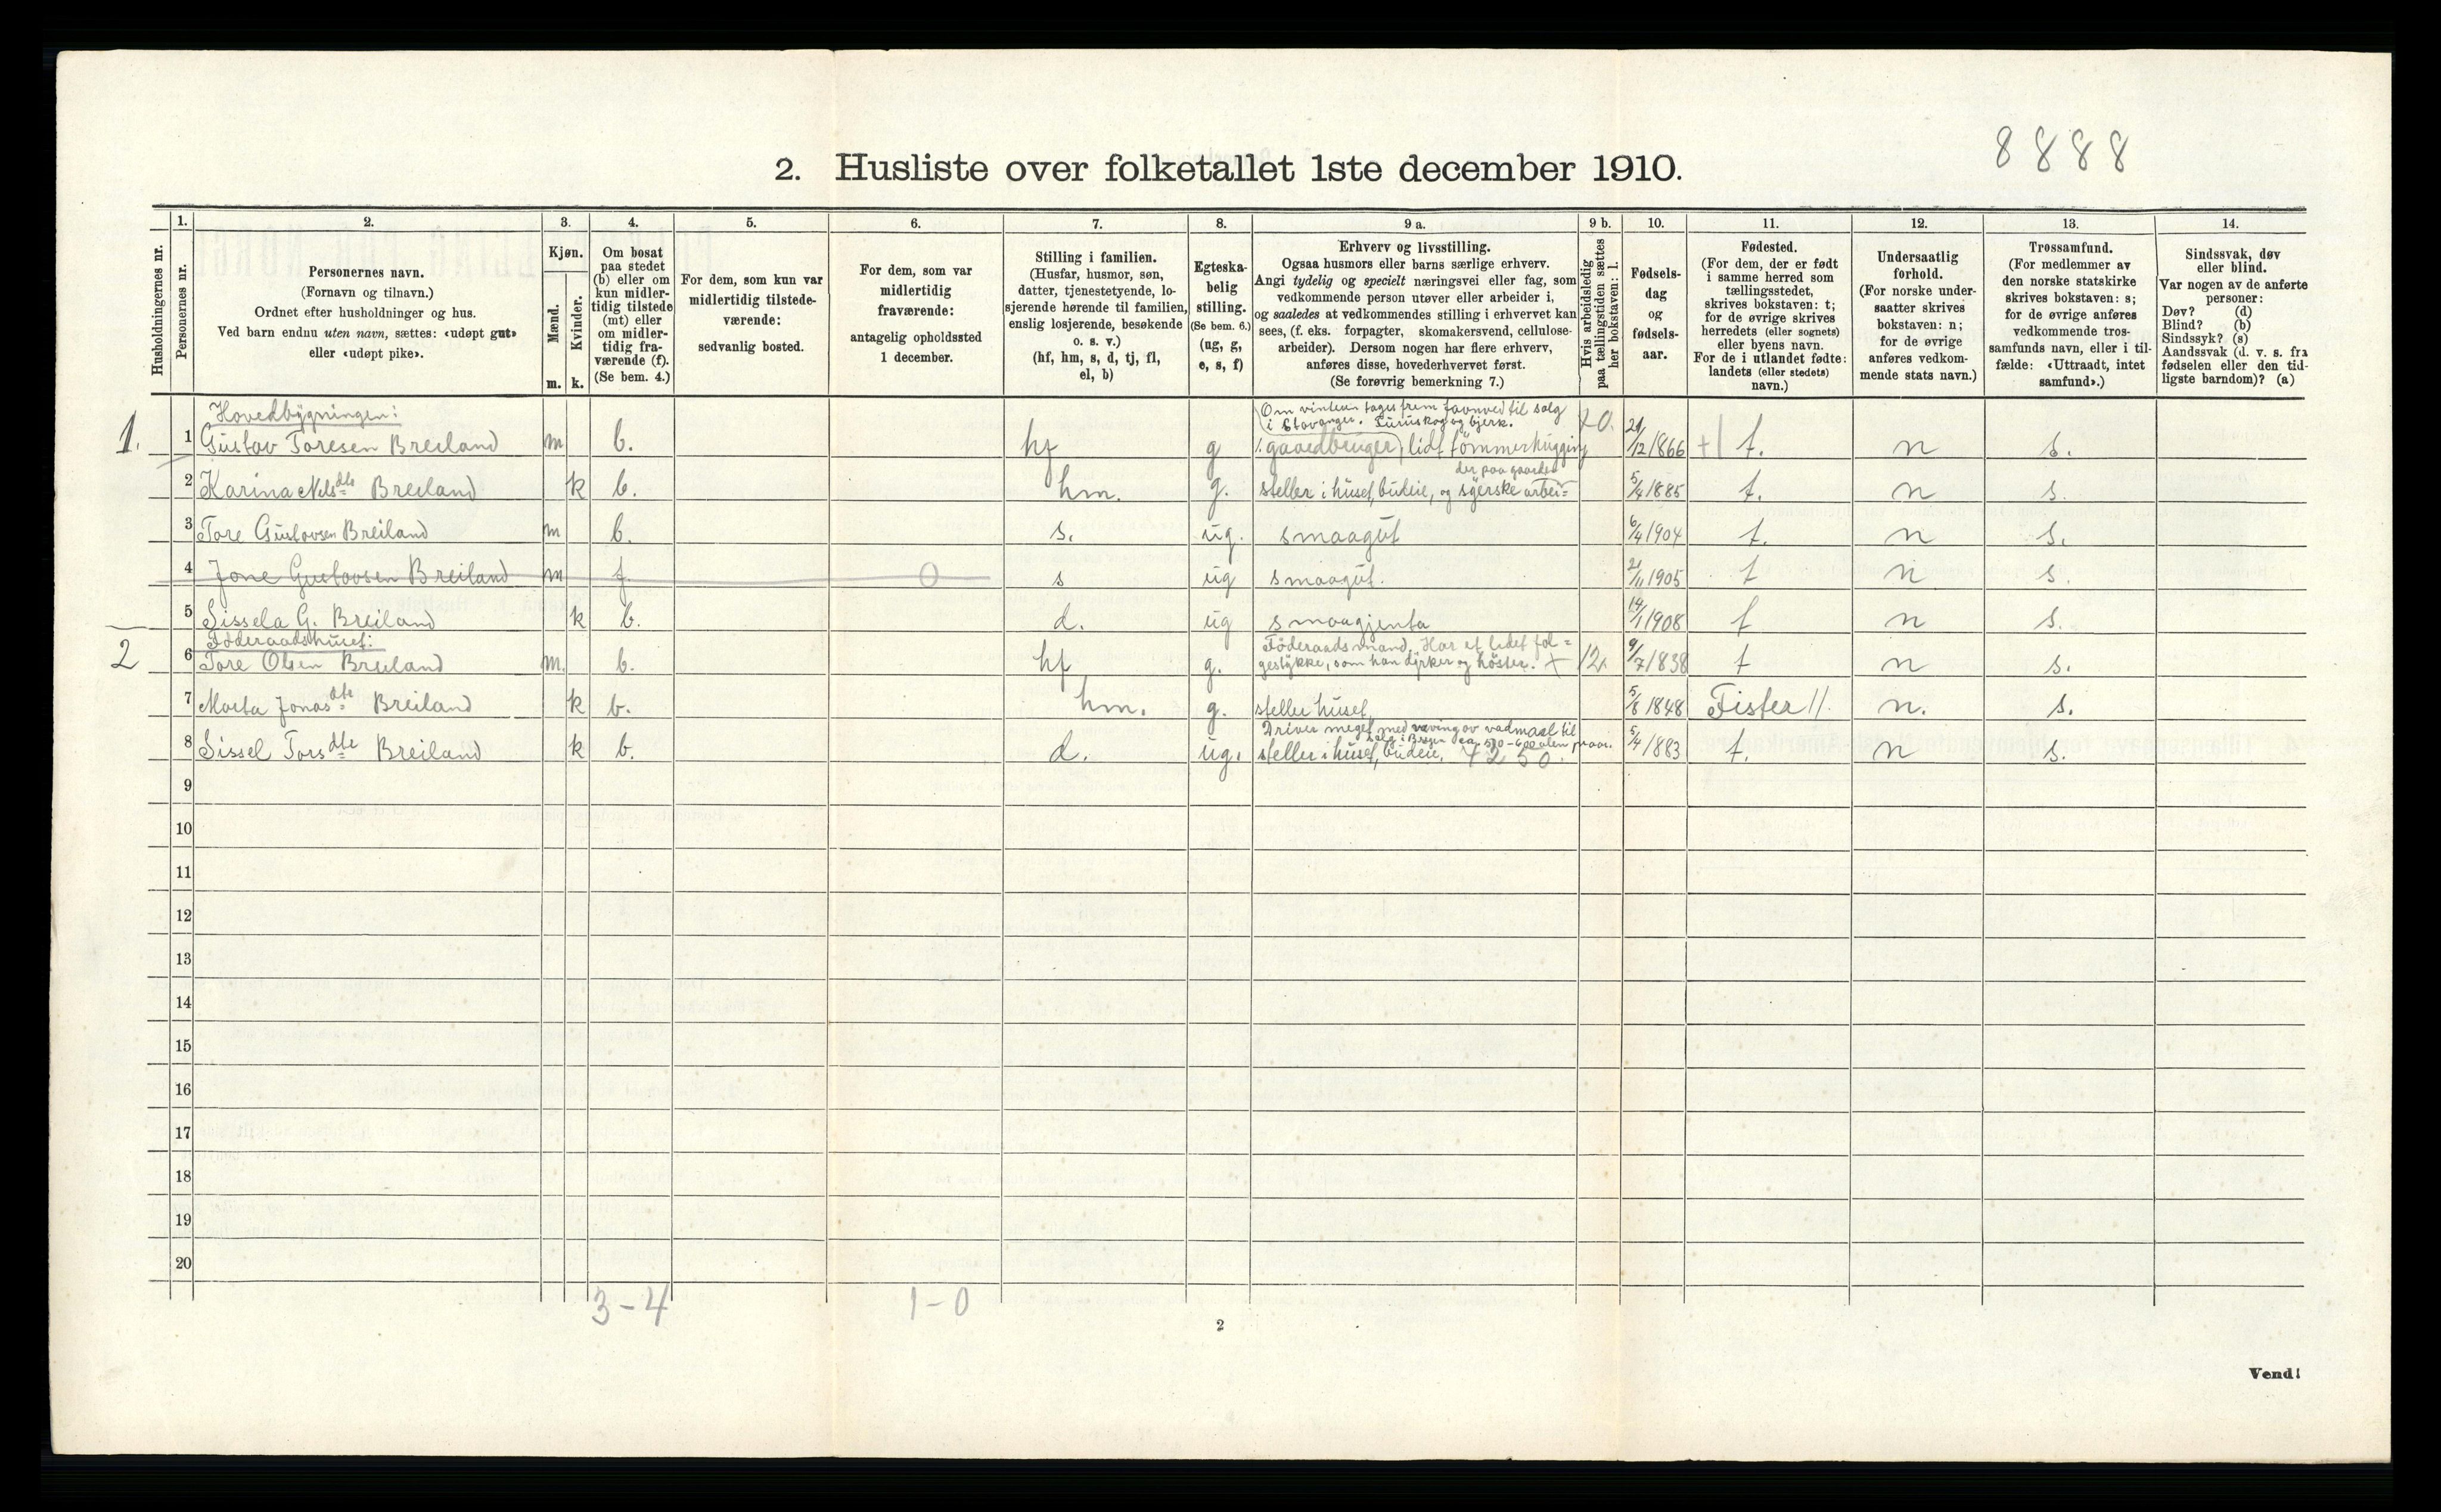 8888
2. Husliste over folketallet 1ste december 1910.
Husholdningernes nr.
1.
Personernes nr.
2.
Personernes navn.
(Fornavn og tilnavn.)
Ordnet efter husholdninger og hus.
Ved barn endnu uten navn, sættes: «udøpt gut»
eller «udøpt pike».
3.
Kjøn.
Mænd.
Kvinder.
m. k.
4.
Om bosat
paa stedet
(b) eller om
kun midler-
tidig tilstede
(mt) eller
om midler-
tidig fra-
værende (f).
(Se bem. 4.)
5.
For dem, som kun var
midlertidig tilstede-
værende:
sedvanlig bosted.
6.
For dem, som var
midlertidig
fraværende:
antagelig opholdssted
1 december.
7.
Stilling i familien.
(Husfar, husmor, søn,
datter, tjenestetyende, lo-
sjerende hørende til familien,
enslig losjerende, besøkende
o. s. v.)
(hf, hm, s, d, tj, fl,
el, b)
8.
Egteska-
belig
stilling.
(Se bem. 6.)
(ug, g,
e, s, f)
9 a.
Erhverv og livsstilling.
Ogsaa husmors eller barns særlige erhverv.
Angi tydelig og specielt næringsvei eller fag, som
vedkommende person utøver eller arbeider i,
og saaledes at vedkommendes stilling i erhvervet kan
sees, (f. eks. forpagter, skomakersvend, cellulose-
arbeider). Dersom nogen har flere erhverv,
anføres disse, hovederhvervet først.
(Se forøvrig bemerkning 7.)
9 b.
Hvis arbeidsledig
paa tællingstiden sættes
her bokstaven: l.
10.
Fødsels-
dag
og
fødsels-
aar.
11.
Fødested.
(For dem, der er født
i samme herred som
tællingsstedet,
skrives bokstaven: t;
for de øvrige skrives
herredets (eller sognets)
eller byens navn.
For de i utlandet fødte:
landets (eller stedets)
navn.)
12.
Undersaatlig
forhold.
(For norske under-
saatter skrives
bokstaven: n;
for de øvrige
anføres vedkom-
mende stats navn.)
13.
Trossamfund.
(For medlemmer av
den norske statskirke
skrives bokstaven: s;
for de øvrige anføres
vedkommende tros-
samfunds navn, eller i til-
fælde: «Uttraadt, intet
samfund».)
14.
Sindssvak, døv
eller blind.
Var nogen av de anførte
personer:
Døv? (d)
Blind? (b)
Sindssyk? (s)
Aandssvak (d. v. s. fra
fødselen eller den tid-
ligste barndom)? (a)
Hovedbygningen:
Om vinteren tages frem favnved til salg
i Stavanger. Furuskog og bjerk.
1. 1 Gustav Toresen Breiland m b. hf g 1. gaardbruger, lidt tømmerhugging 21/12 1866 t. n s.
der paa gaarden
2 Karina Nelsdte Breiland k b. hm. g. steller i huset, budeie, og syerske arbei= 5/4 1885 t. n s.
3 Tore Gustavsen Breiland m b. s. ug. smaagut 6/4 1904 t. n s.
4 Jone Gustavsen Breiland m f 0 s ug smaagut. 21/11 1905 t n s.
5 Sissela G. Breiland k b. d. ug smaagjenta 14/1 1908 t n s.
Föderaadshuset:
Föderaadsmand. Har et lidet fol=
2 6 Tore Olsen Breiland m. b. hf g. gestykke, som han dyrker og höster. + 12. 9/7 1838 t n s.
7 Marta Jonasdte Breiland k b. hm. g. steller huset 5/8 1848 Fister 11. n. s.
Driver meget med væving av vadmael til
salg i Bergen ca. 500-600 alen pr aar.
8 Sissel Torsdte Breiland k b. d. ug. steller i huset, budeie, 7250. 5/4 1883 t. n s.
9
10
11
12
13
14
15
16
17
18
19
20
3-4 1-0
2
Vend!